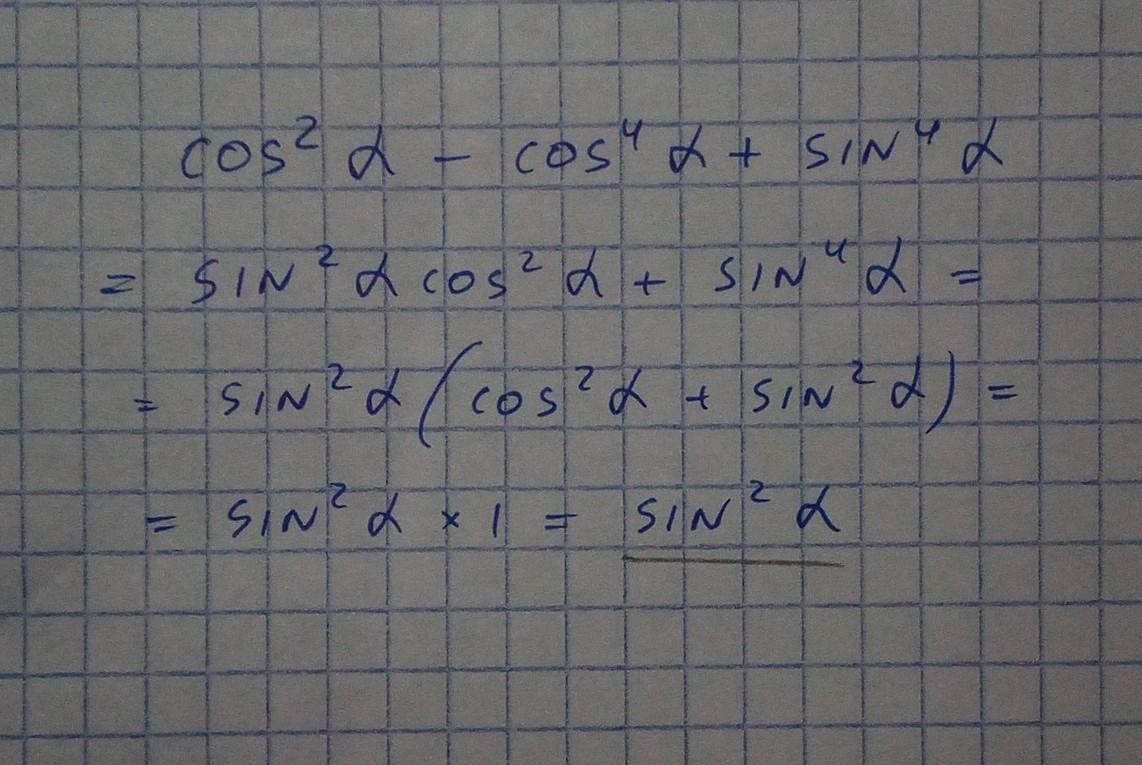 cos² α - cos⁴ α + sin⁴ α
= sin² α cos² α + sin⁴ α =
= sin² α (cos² α + sin² α) =
= sin² α × 1 = sin² α